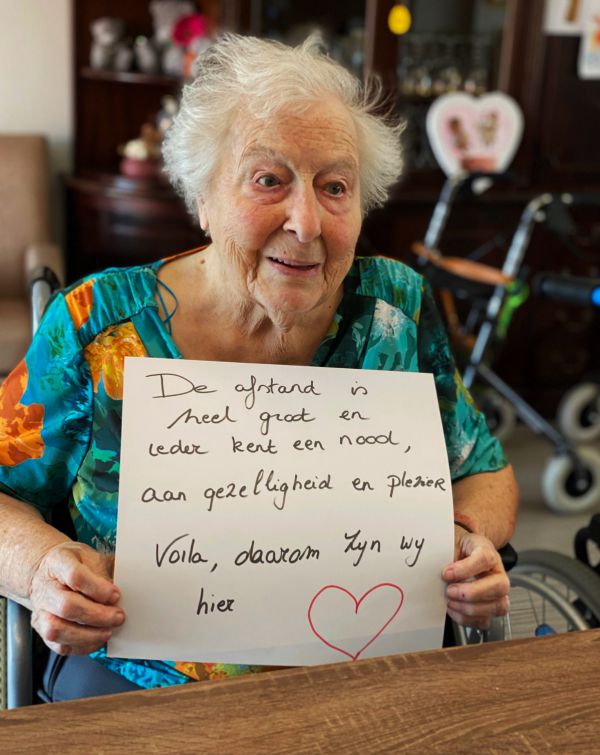 De afstand is
heel groot en
ieder kent een nood,
aan gezelligheid en plezier
Voila, daarom zyn wy
hier